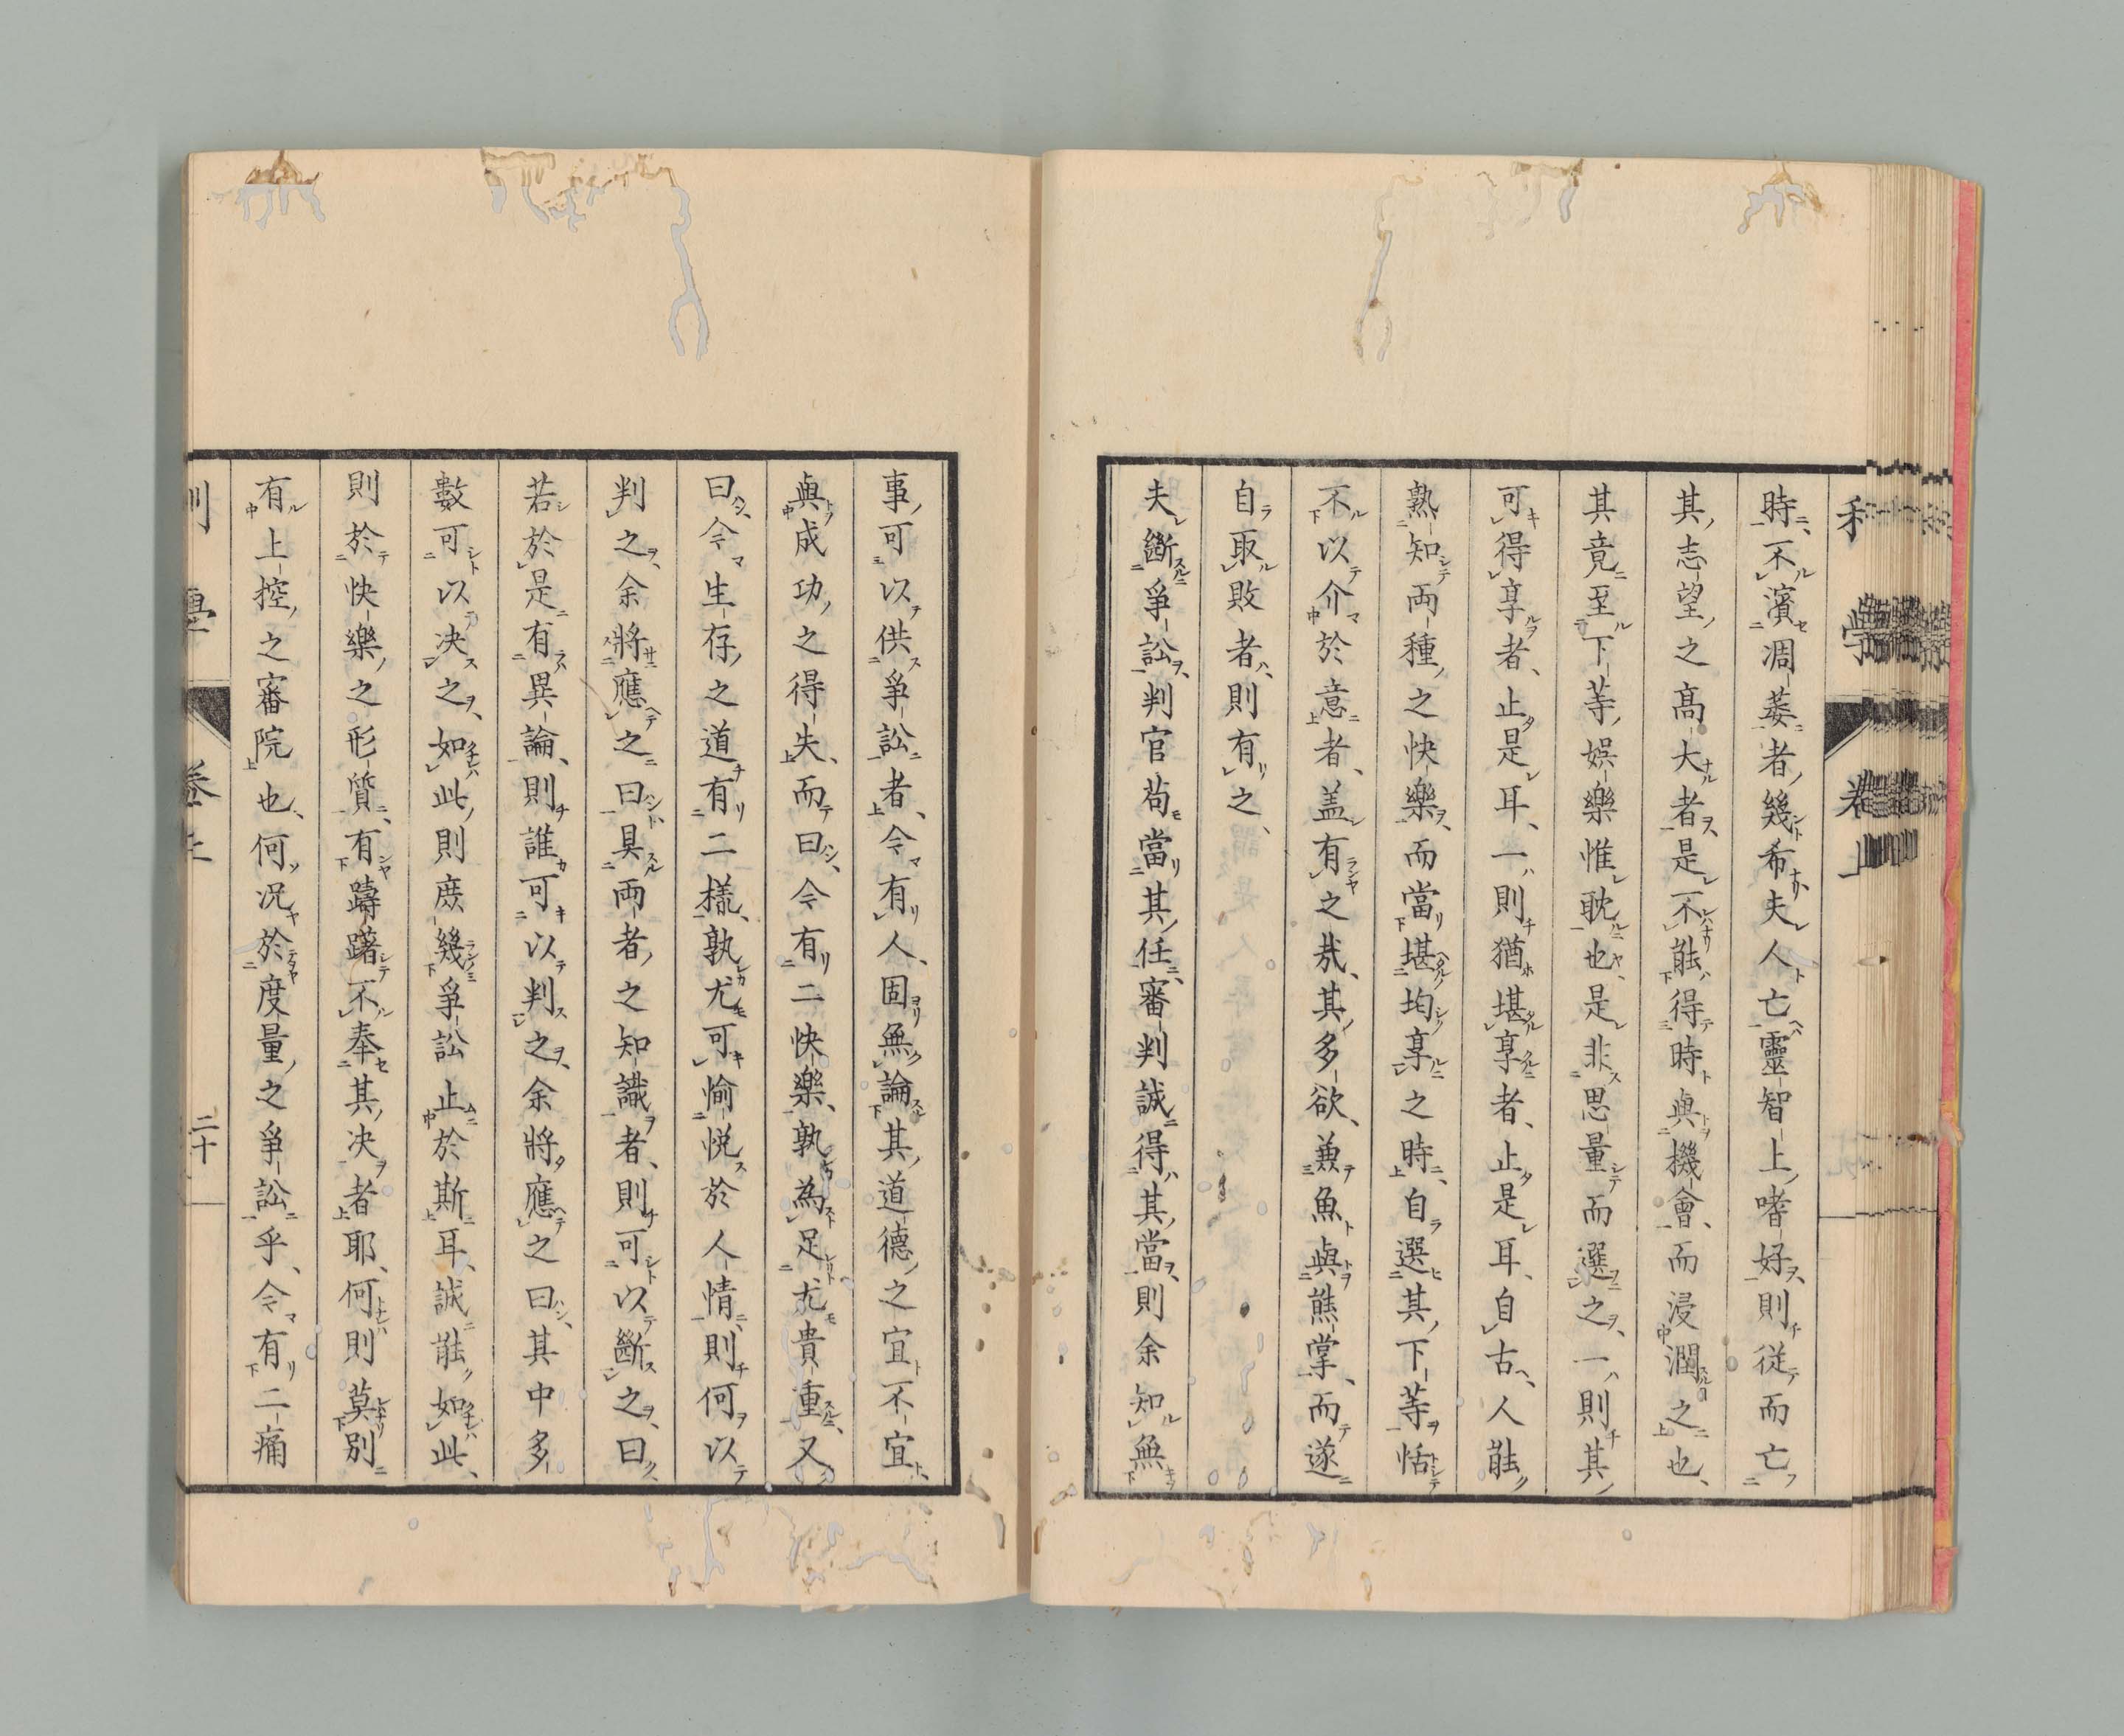 時不濱凋萎者幾希夫人亡靈智上嗜好則従而亡
其志望之高大者是不能得時與機會而浸潤之也
其竟至下等娯樂惟耽也是非思量而選之一則其
可得享者止是耳一則猶堪享者止是耳自古人能
熟知両種之快樂而當堪均享之時自選其下等恬
不以介於意者盖有之哉其多欲兼魚與熊掌而遂
自取敗者則有之
夫斷爭訟判官苟當其任審判誠得其當則余知無
事可以供爭訟者今有人固無論其道德之宜不宜
與成功之得失而曰今有二快樂孰為足尤貴重又
曰今生存之道有二樣孰尤可愉悦於人情則何以
判之余將應之曰具両者之知識者則可以斷之曰
若於是有異論則誰可以判之余將應之曰其中多
數可以决之如此則庶幾爭訟止於斯耳誠能如此
則於快樂之形質有躊躇不奉其决者耶何則莫別
有上控之審院也何况於度量之爭訟乎今有二痛
卷上
二十